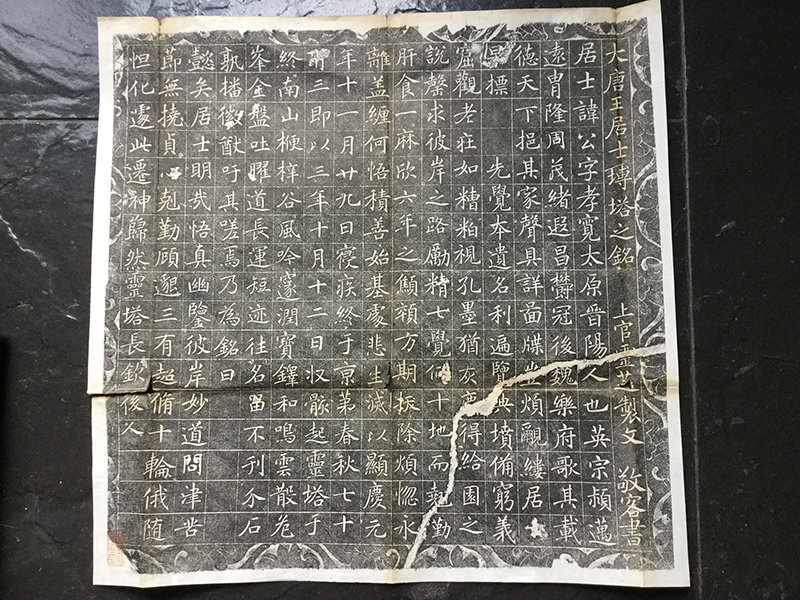 大唐王居士塼塔之銘 上官靈芝製文 敬客書
居士諱公字孝寬太原晉陽人也英宗頴邁
遠冑隆周茂緒遐昌欝冠後魏樂府歌其載
德天下挹其家聲具詳啚牒豈煩覼縷居士
早標 先覺本遺名利遍覽典墳備窮義
窟觀老莊如糟粕視孔墨猶灰塵得給園之
說罄求彼岸之路勵精七覺仰十地而翹勤
肝食一麻欣六年之顦顇方期拔除煩惚永
離蓋纏何悟積善始基處悲生滅以顯慶元
年十一月廿九日寑疾終于京第春秋七十
有三即以三年十月十二日收骸起靈塔于
終南山梗梓谷風吟邃澗寶鐸和鳴雲散危
峯金盤吐曜道長運短迹往名留不刊介石
孰播徽猷吁其嗟焉乃為銘曰
懿矣居士明哉悟真幽鑒彼岸妙道問津苦
節無撓貞心剋勤顧懇三有超脩十輪俄隨
怛化遽此遷神巋然靈塔長欽後人